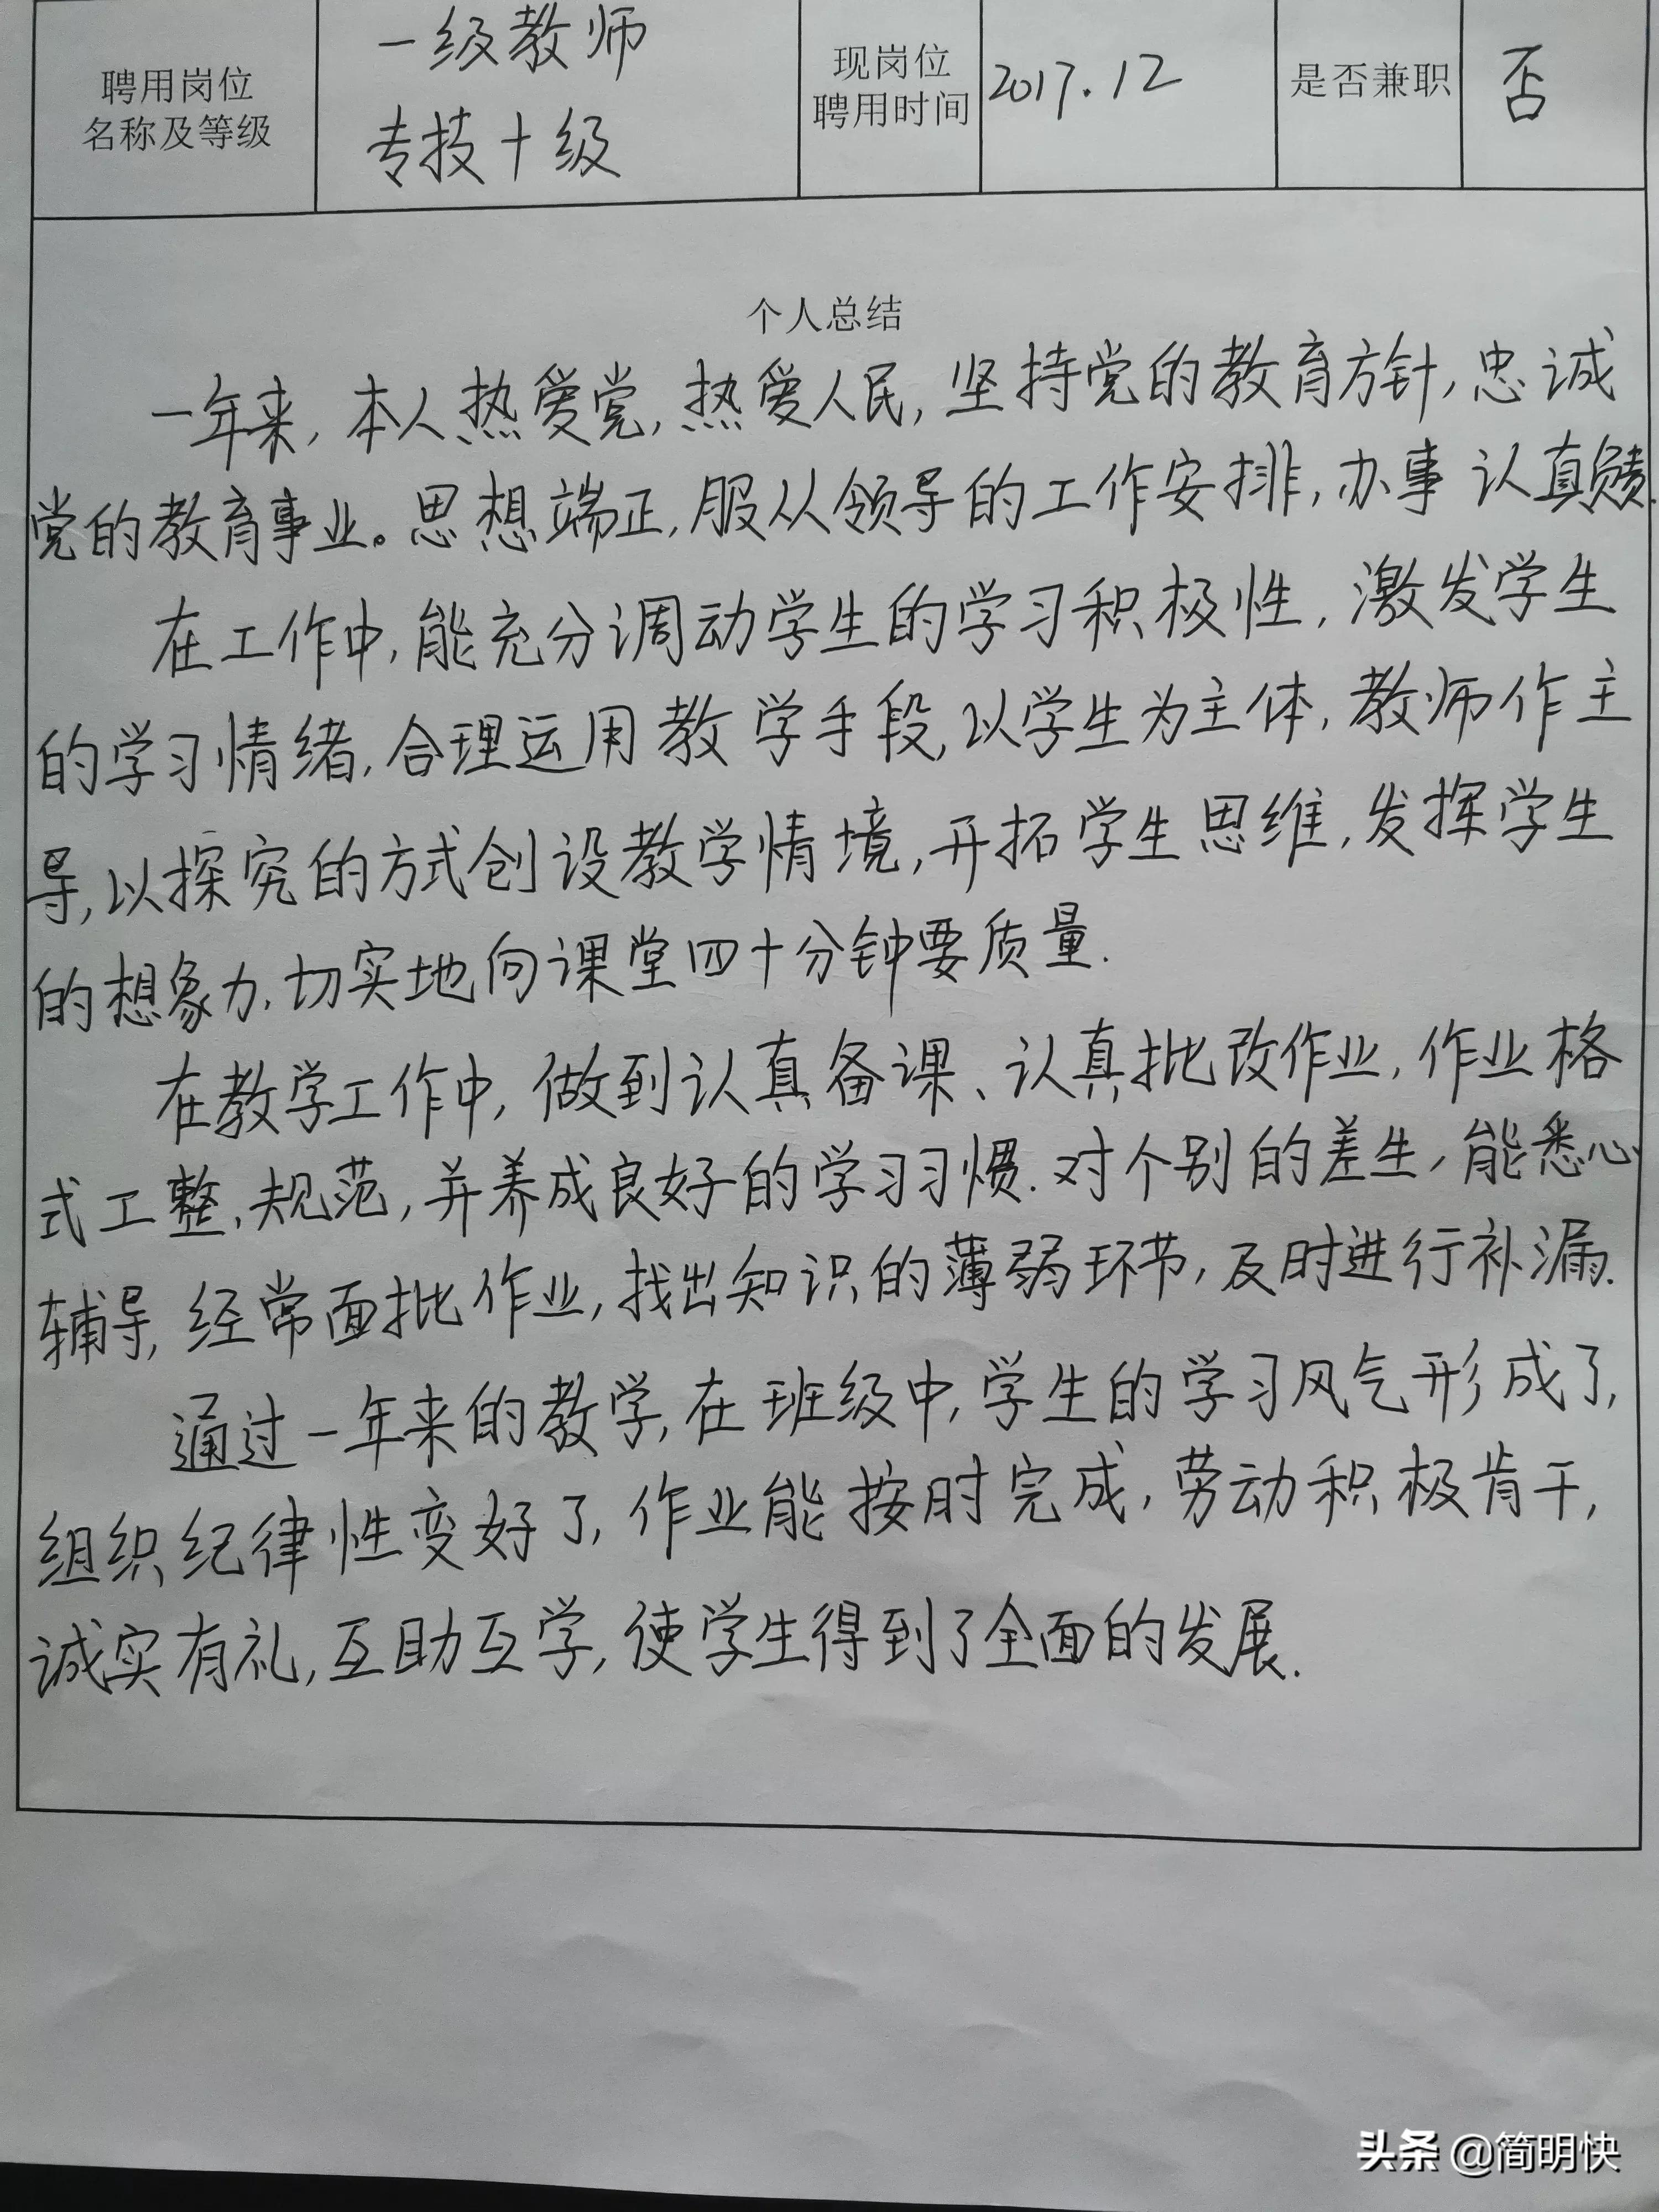 聘用岗位
名称及等级
一级教师
专技十级
现岗位
聘用时间
2017.12
是否兼职
否
个人总结
一年来,本人热爱党,热爱人民,坚持党的教育方针,忠诚
党的教育事业。思想端正,服从领导的工作安排,办事认真负责.
在工作中,能充分调动学生的学习积极性,激发学生
的学习情绪,合理运用教学手段,以学生为主体,教师作主
导,以探究的方式创设教学情境,开拓学生思维,发挥学生
的想象力,切实地向课堂四十分钟要质量.
在教学工作中,做到认真备课、认真批改作业,作业格
式工整,规范,并养成良好的学习习惯.对个别的差生,能悉心
辅导,经常面批作业,找出知识的薄弱环节,及时进行补漏.
通过一年来的教学,在班级中,学生的学习风气形成了,
组织纪律性变好了,作业能按时完成,劳动积极肯干,
诚实有礼,互助互学,使学生得到了全面的发展.
头条 @简明快